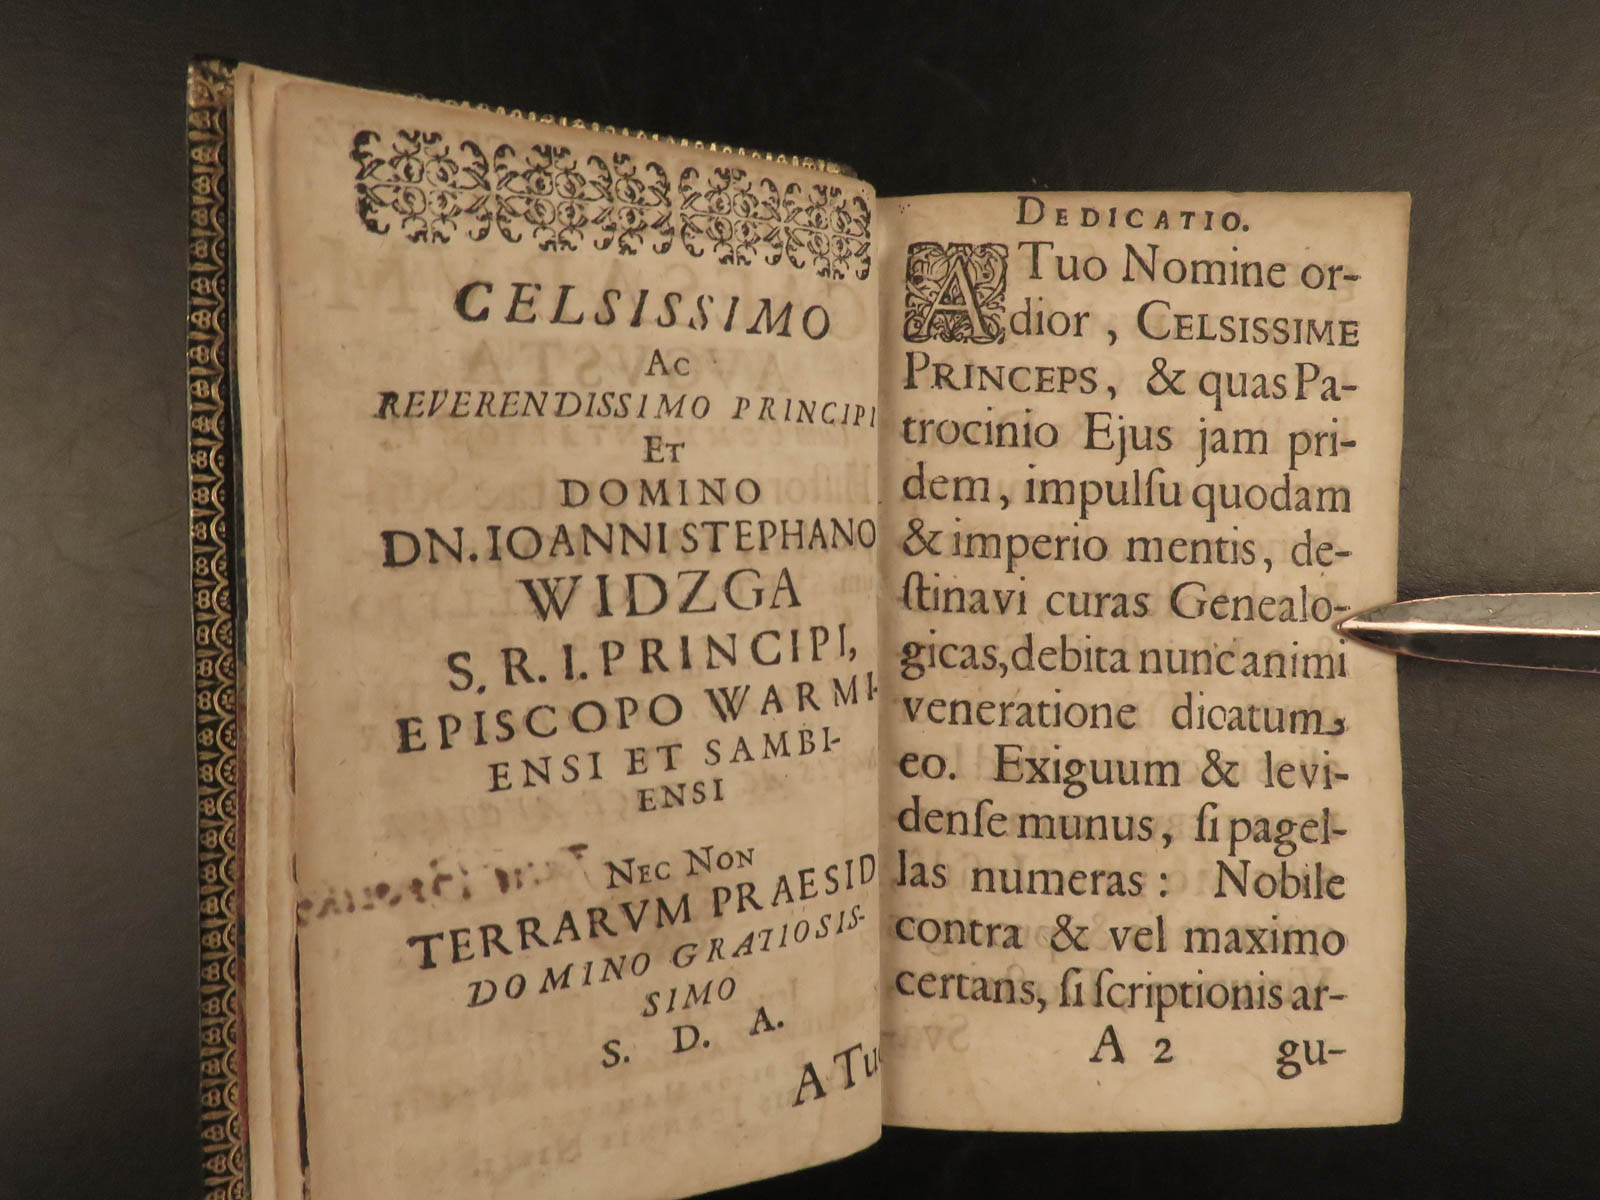 CELSISSIMO
AC
REVERENDISSIMO PRINCIPI
ET
DOMINO
DN. IOANNI STEPHANO
WIDZGA
S. R. I. PRINCIPI,
EPISCOPO WARMI-
ENSI ET SAMBI-
ENSI
NEC NON
TERRARVM PRAESID
DOMINO GRATIOSIS-
SIMO
S. D. A.
A Tuo
DEDICATIO.
A Tuo Nomine or-
dior, CELSISSIME
PRINCEPS, & quas Pa-
trocinio Ejus jam pri-
dem, impulſu quodam
& imperio mentis, de-
ſtinavi curas Genealo-
gicas, debita nunc animi
veneratione dicatum
eo. Exiguum & levi-
denſe munus, ſi pagel-
las numeras: Nobile
contra & vel maximo
certans, ſi ſcriptionis ar-
A 2 gu-